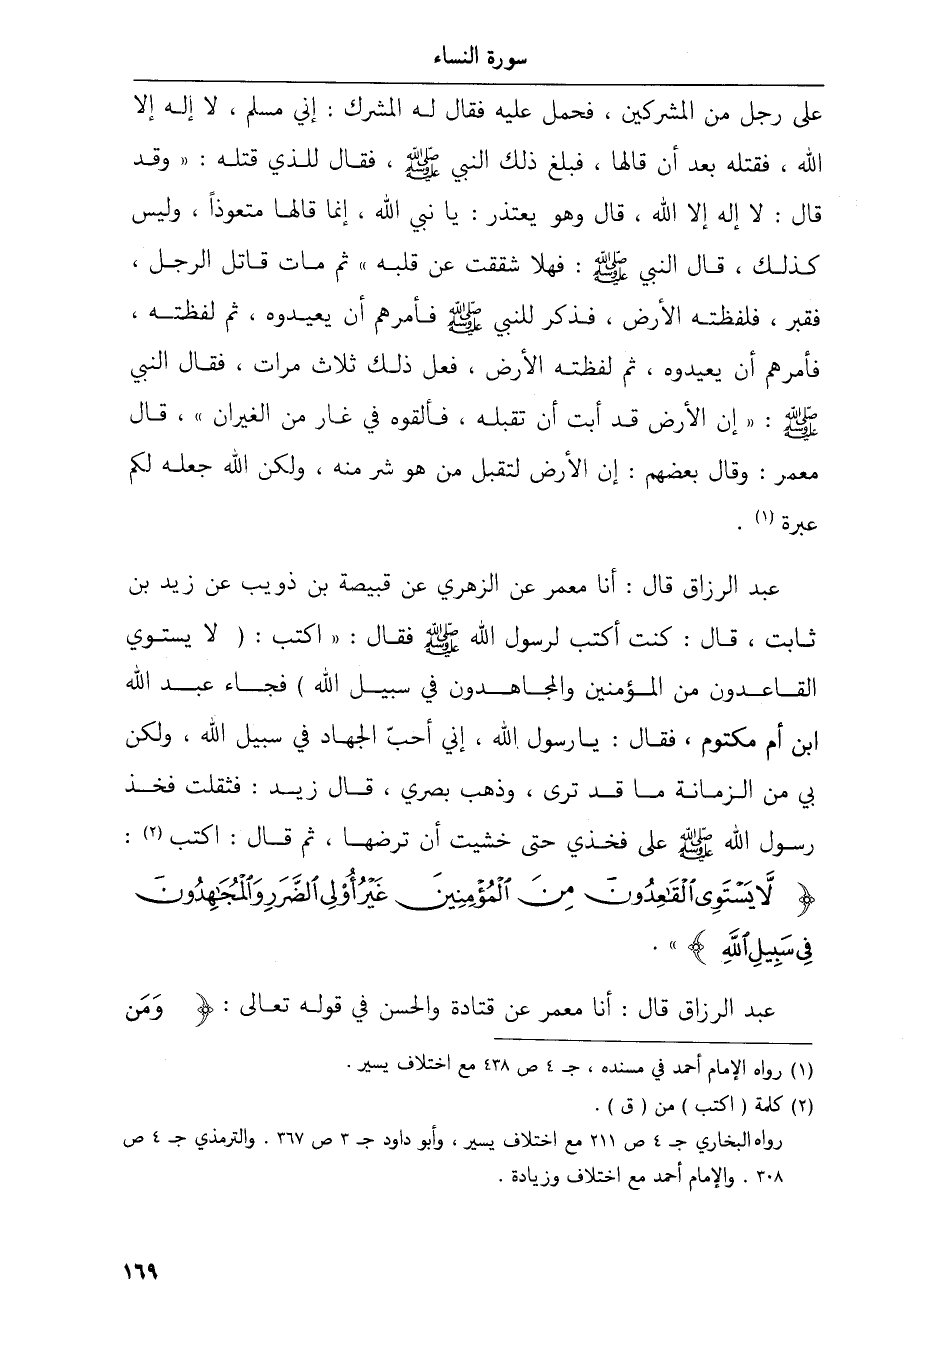 سورة النساء
على رجل من المشركين ، فحمل عليه فقال له المشرك : إني مسلم ، لا إله إلا
الله ، فقتله بعد أن قالها ، فبلغ ذلك النبي ﷺ ، فقال للذي قتله : « وقد
قال : لا إله إلا الله ، قال وهو يعتذر : يا نبي الله ، إنما قالها متعوذاً ، وليس
كذلك ، قال النبي ﷺ : فهلا شققت عن قلبه » ثم مات قاتل الرجل ،
فقبر ، فلفظته الأرض ، فذكر للنبي ﷺ فأمرهم أن يعيدوه ، ثم لفظته ،
فأمرهم أن يعيدوه ، ثم لفظته الأرض ، فعل ذلك ثلاث مرات ، فقال النبي
ﷺ : « إن الأرض قد أبت أن تقبله ، فألقوه في غار من الغيران » ، قال
معمر : وقال بعضهم : إن الأرض لتقبل من هو شر منه ، ولكن الله جعله لكم
عبرة (١) .
عبد الرزاق قال : أنا معمر عن الزهري عن قبيصة بن ذويب عن زيد بن
ثابت ، قال : كنت أكتب لرسول الله ﷺ فقال : « اكتب : ( لا يستوي
القاعدون من المؤمنين والمجاهدون في سبيل الله ) فجاء عبد الله
ابن أم مكتوم ، فقال : يارسول الله ، إني أحبّ الجهاد في سبيل الله ، ولكن
بي من الزمانة ما قد ترى ، وذهب بصري ، قال زيد : فثقلت فخذ
رسول الله ﷺ على فخذي حتى خشيت أن ترضها ، ثم قال : اكتب (٢) :
﴿ لَّا يَسْتَوِى ٱلْقَٰعِدُونَ مِنَ ٱلْمُؤْمِنِينَ غَيْرُ أُوْلِى ٱلضَّرَرِ وَٱلْمُجَٰهِدُونَ
فِى سَبِيلِ ٱللَّهِ ﴾ » .
عبد الرزاق قال : أنا معمر عن قتادة والحسن في قوله تعالى : ﴿ وَمَن
(١) رواه الإمام أحمد في مسنده ، جـ ٤ ص ٤٣٨ مع اختلاف يسير .
(٢) كلمة ( اكتب ) من ( ق ) .
رواه البخاري جـ ٤ ص ٢١١ مع اختلاف يسير ، وأبو داود جـ ٣ ص ٣٦٧ . والترمذي جـ ٤ ص
٣٠٨ . والإمام أحمد مع اختلاف وزيادة .
١٦٩